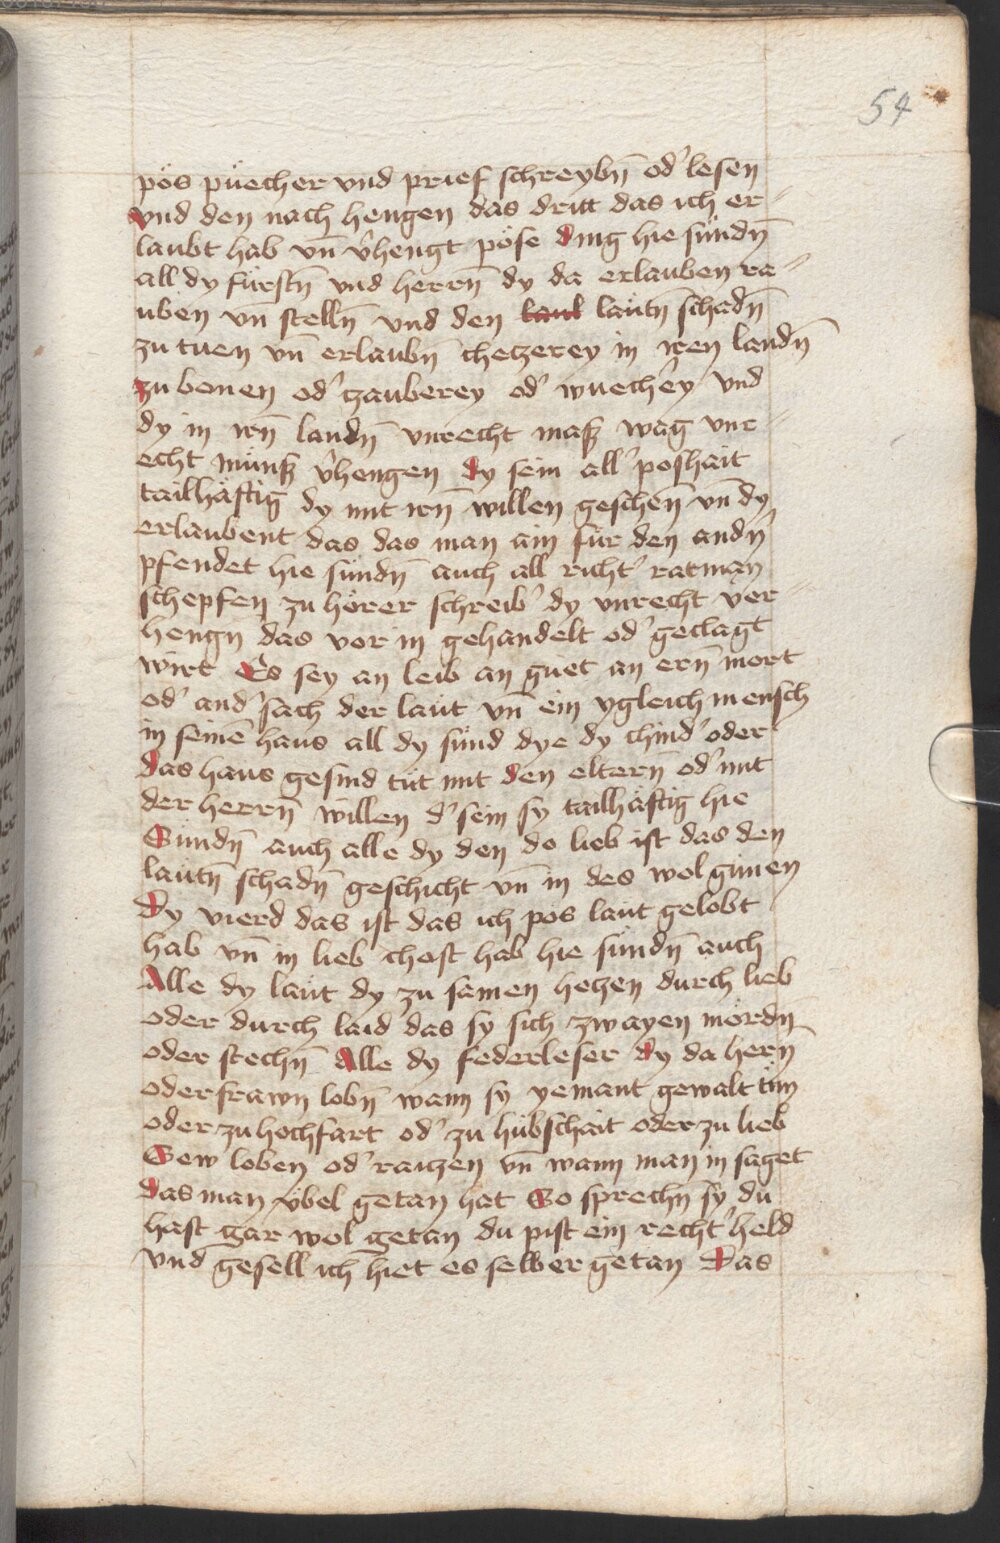 54
pös püecher vnd prief schreybn̄ od' lesen
vnd den nach hengen das dritt das ich er-
laubt hab vn̄ v'hengt pöse ding hie sündn̄
all dy fürstn̄ vnd herrn̄ dy da erlauben ra-
uben vn̄ stelln̄ vnd den laut läutn̄ schadn̄
zu tuen vn̄ erlaubn̄ chetzerey in iren landn̄
zu bonen od' zauberey od' wuech'ey vnd
dy in irn̄ landn̄ vnrecht masz wag vnr-
echt münsz v'hengen dy sein all' poshait
tailhäftig dy mit irn̄ willen geschen vn̄ dy
erlaubent das das man ain für den andn̄
pfendet hie sündn̄ auch all richt' ratman
schepfen zu hörer schreib' dy vnrecht ver-
hengn das vor in gehandelt od' geclagt
wirt Es sey an leib an guet an ern̄ mort
od' and' sach der läut vn̄ ein ygleich mensch
in seinē haus all dy sünd dye dy chind' oder
das haus gesind tut mit den eltern̄ od' mit
der herrn̄ willen d' sein sy tailhäftig hie
Sündn̄ auch alle dy den do lieb ist das den
läutn̄ schadn̄ geschicht vn̄ in des wol günen
Dy vierd das ist das ich pös läut gelobt
hab vn̄ in lieb chost hab hie sündn̄ auch
Alle dy läut dy zu samen hetzen durch lieb
oder durch laid das sy sich zwayen mördn̄
oder stechn̄ Alle dy federleser dy da hern̄
oder frawn lobn̄ wann sy yemant gewalt tün
oder zu hochfart od' zu hübschait oder zu lieb
Sew loben od' raitzen vn̄ wann man in saget
das man vbel getan hat So sprechn̄ sy du
hast gar wol getan du pist ein recht' held
vnd gesell ich hiet es selber getan Das